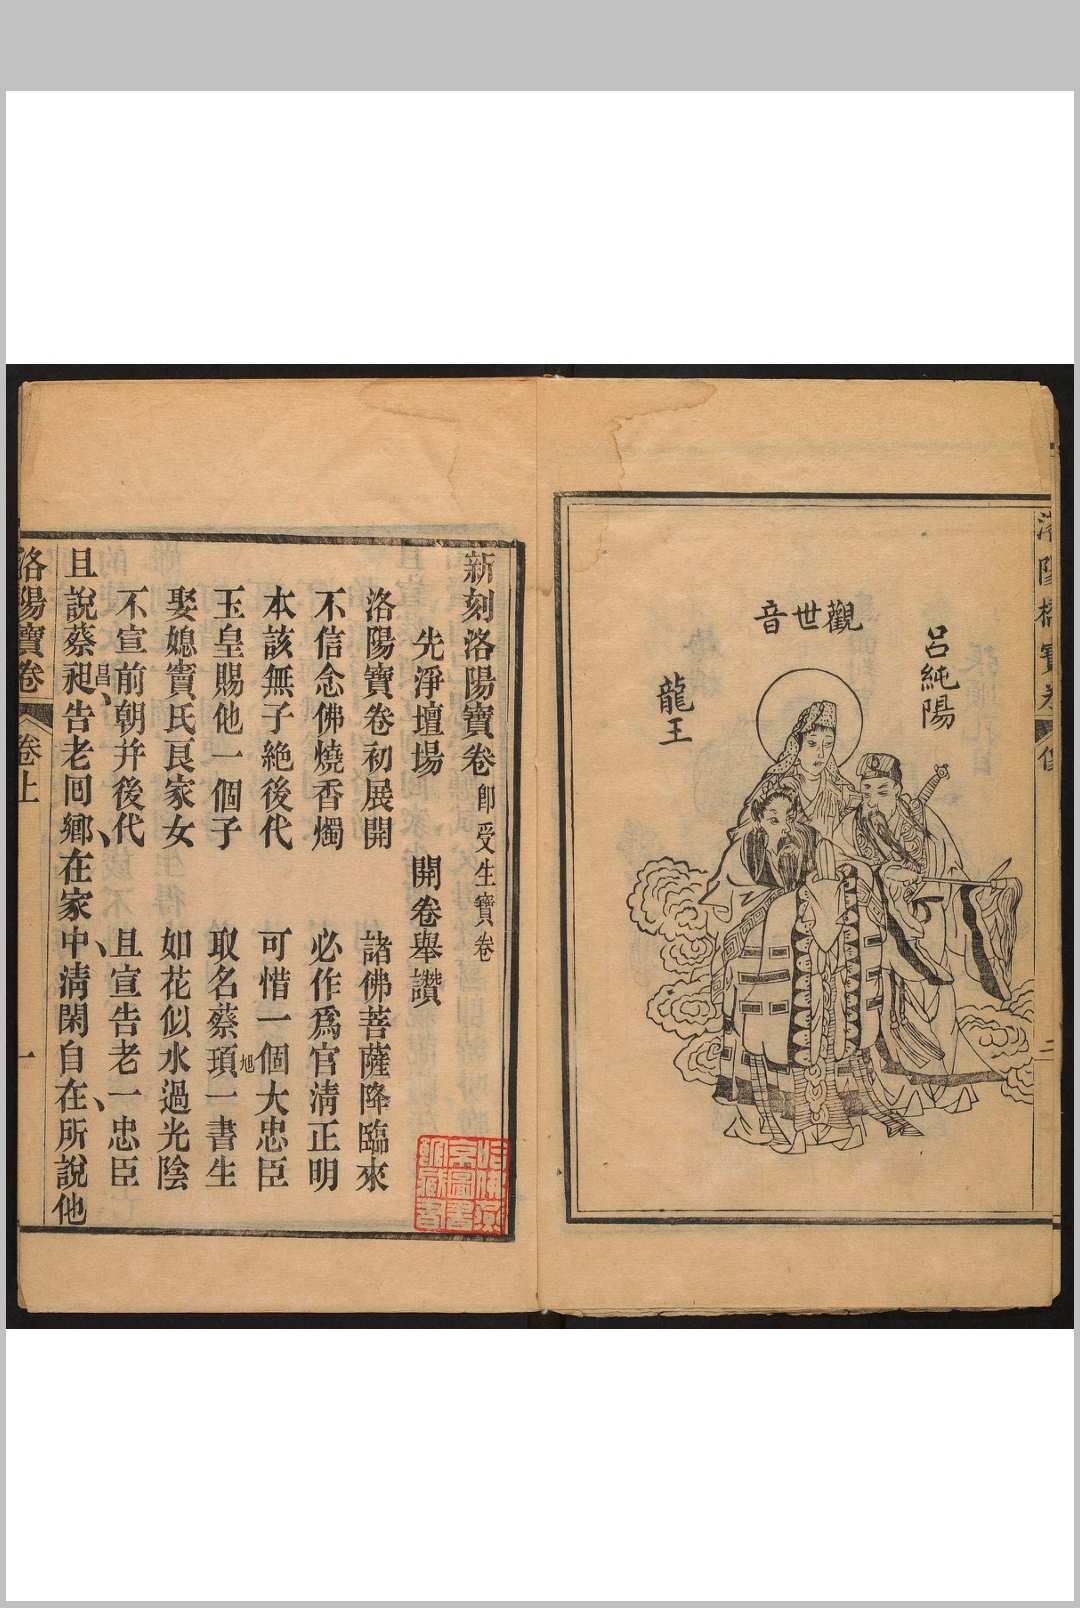 洛陽橋寶卷
像
二
呂純陽
觀世音
龍王
新刻洛陽寶卷 卽受生寶卷
先淨壇場 開卷舉讚
洛陽寶卷初展開 諸佛菩薩降臨來
不信念佛燒香燭 必作爲官清正明
本該無子絶後代 可惜一個大忠臣
玉皇賜他一個子 取名蔡頊旭一書生
娶媳竇氏良家女 如花似水過光陰
不宣前朝并後代 且宣告老一忠臣
且說蔡昶昌、告老回鄉、在家中、清閑自在、所說他
洛陽寶卷
卷上
一
哈佛燕京圖書館藏書